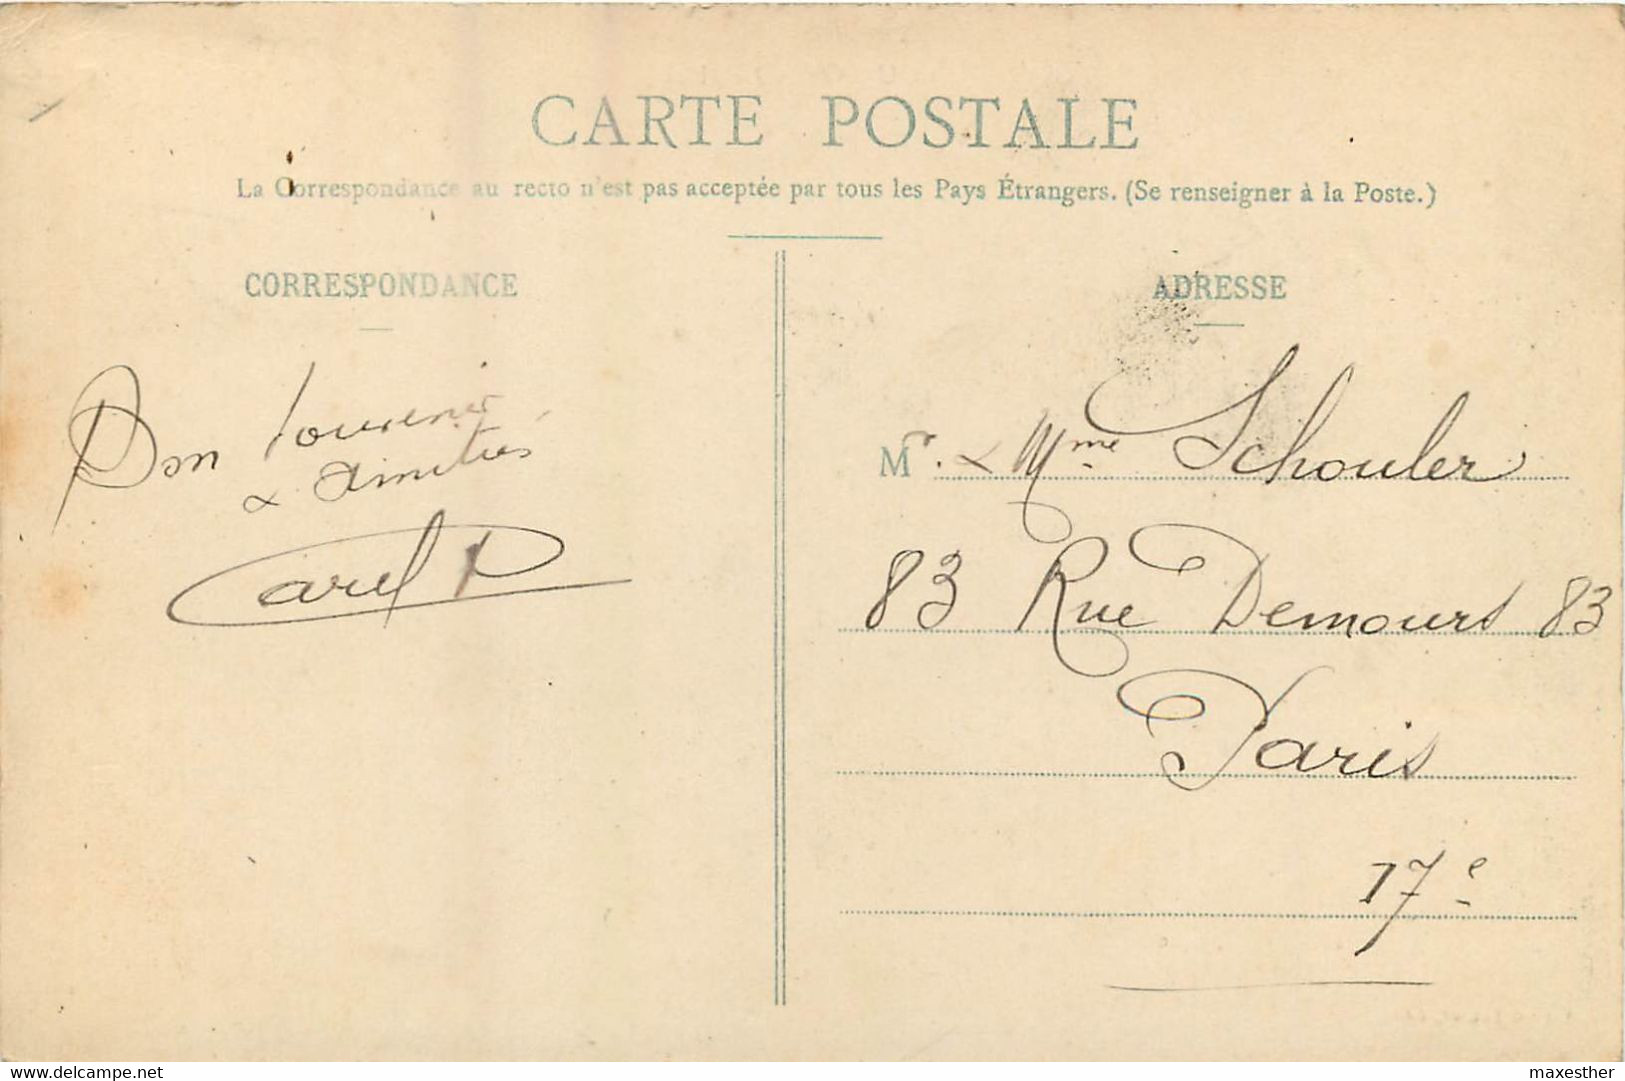 CARTE POSTALE
La Correspondance au recto n'est pas acceptée par tous les Pays Étrangers. (Se renseigner à la Poste.)
CORRESPONDANCE
Bon souvenir
& Amitiés
Carel P
ADRESSE
Mr. & Mme Schouler
83 Rue Demours 83
Paris
17e
www.delcampe.net
maxesther